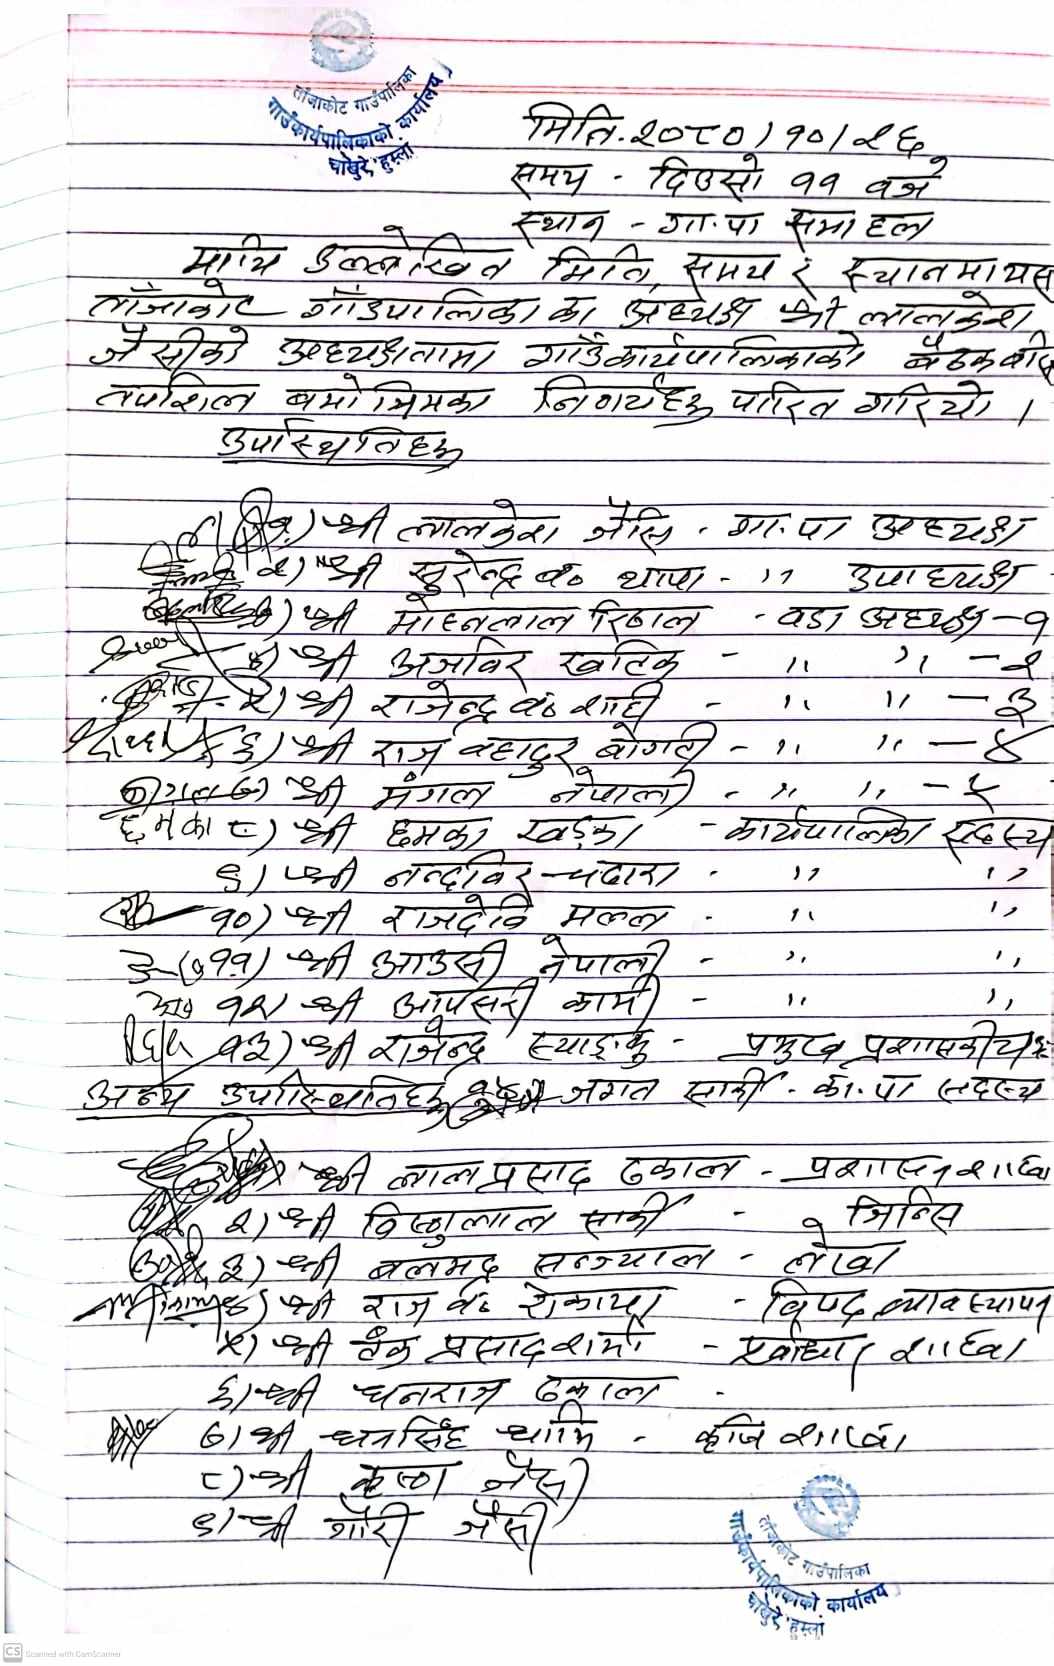 ताँजाकोट गाउँपालिका
गाउँकार्यपालिकाको कार्यालय
धोखुरे, हुम्ला
मिति. २०८०।१०।२६
समय - दिउसो ११ वजे
स्थान - गा.पा सभाहल
माथि उल्लेखित मिति, समय र स्थानमा यस
ताँजाकोट गाँउपालिका का अध्यक्ष श्री लालकेश
जैसीको अध्यक्षतामा गाँउकार्यपालिकाको बैठक बसि
तपशिल बमोजिमका निर्णयहरु पारित गरियो ।
उपस्थितिहरु
१) श्री लालकेश जैसि - गा.पा अध्यक्ष
२) श्री सुरेन्द्र ब० थापा - ,, उपाध्यक्ष
३) श्री मोहनलाल रिजाल - वडा अध्यक्ष - १
४) श्री अजविर खत्रि - ,, ,, - २
५) श्री राजेन्द्र ब० शाही - ,, ,, - ३
६) श्री राज बहादुर बोगटी - ,, ,, - ४
७) श्री मंगल नेपाली - ,, ,, - ५
छमका ८) श्री छमका खड्का - कार्यपालिका सदस्य
९) श्री नन्दविर चदारा - ,, ,,
१०) श्री राजदेवि मल्ल - ,, ,,
११) श्री आउसी नेपाली - ,, ,,
१२) श्री आपसरी कामी - ,, ,,
१३) श्री राजेन्द्र स्याङ्कु - प्रमुख प्रशासकीय
अन्य उपस्थितिहरु जगत सार्की - का.पा सदस्य
श्री लालप्रसाद ढकाल - प्रशासन शाखा
२) श्री विष्णुलाल सार्की - जिन्सि
३) श्री बलभद्र सन्ज्याल - लेखा
४) श्री राज ब० रोकाया - विपद व्यावस्थापन
५) श्री टेक प्रसाद शर्मा - पूर्वाधार शाखा
६) श्री धनराज ढकाल -
७) श्री धनसिंह थामि - कृषि शाखा
८) श्री कृष्ण जैसी
९) श्री गौरी जैसी
ताँजाकोट गाउँपालिका
गाउँकार्यपालिकाको कार्यालय
धोखुरे, हुम्ला
CS Scanned with CamScanner